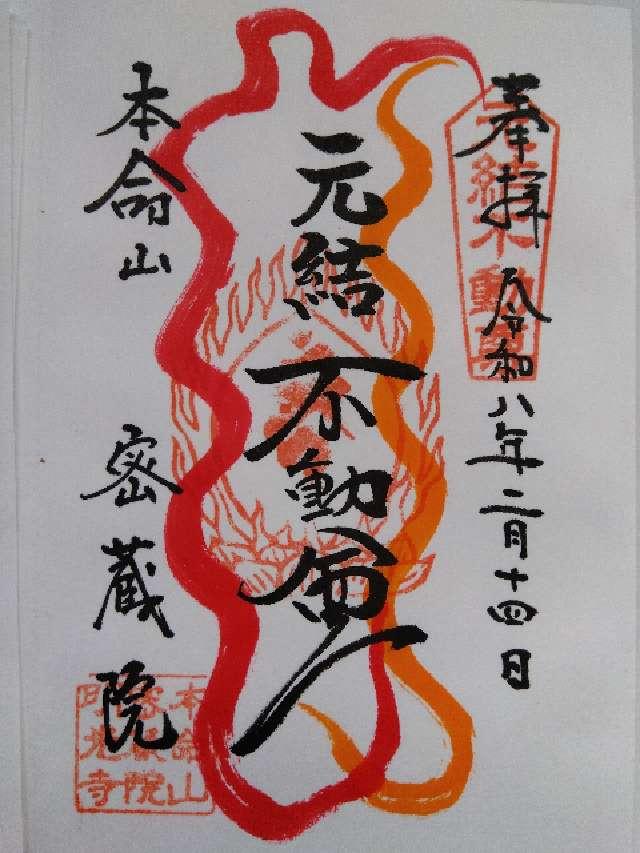 奉拝 令和八年二月十四日
元結不動尊
元結不動尊
本命山 密蔵院
本命山
密蔵院
明光寺